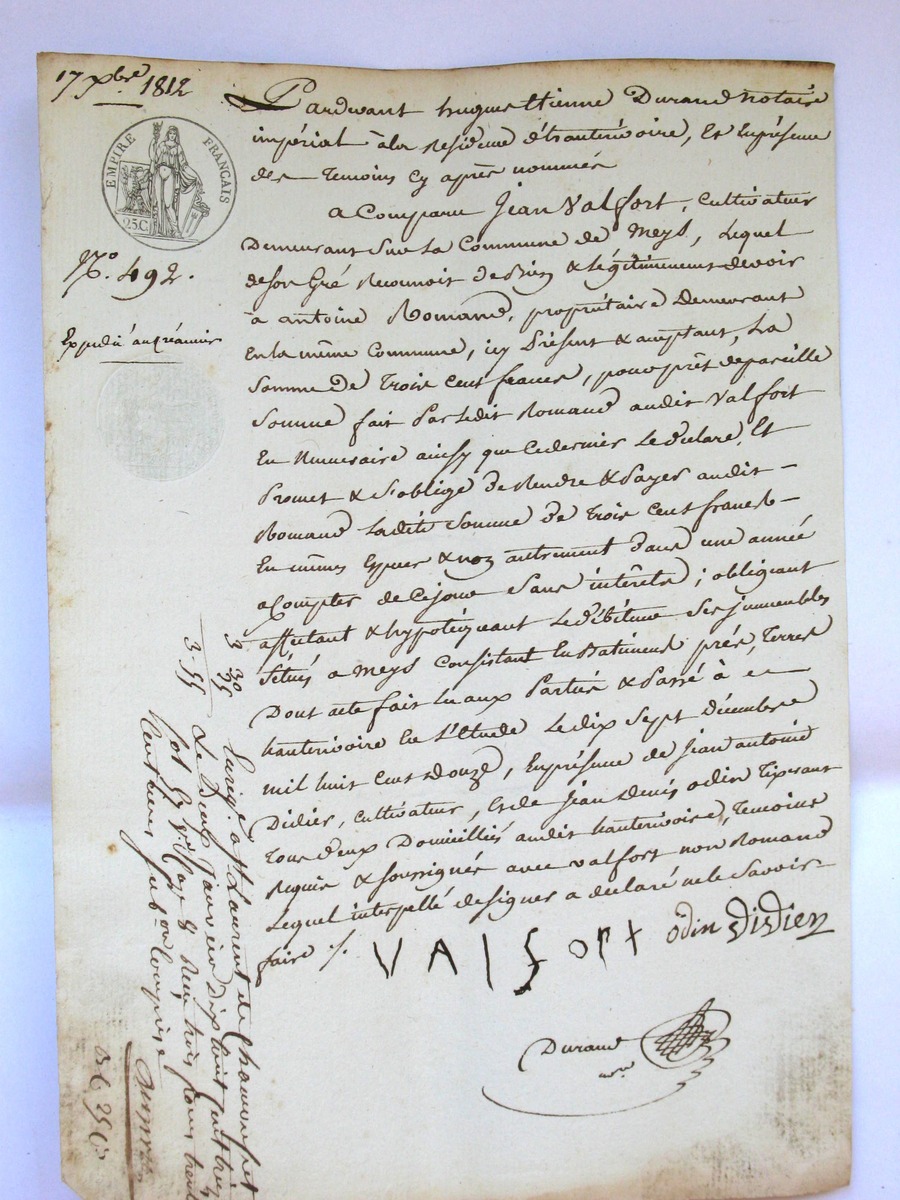 17 Xbre 1812
EMPIRE FRANÇAIS
25.C.
No. 492.
Expédié au créancier
Pardevant hugues Etienne Durand notaire
impérial à la Residence d'hauterivoire, Et En présence
des Temoins Cy après nommés
a Comparu Jean Valfort, Cultivateur
Demeurant Sur La Commune de Meys, Lequel
de son Gré Reconnoit de Bien & légitimement devoir
à antoine Romand, propriétaire Demeurant
En la même Commune, icy Présent & acceptant, La
Somme De Trois Cent francs, pour prêt de pareille
Somme fait Par Ledit Romand audit Valfort
En Numeraire ainsy que Ce dernier Le déclare, Et
Promet & S'oblige De Rendre & Payer audit
Romand Ladite Somme De Trois Cent francs
En mêmes Espèces & non autrement dans une année
a Compter de Ce jour Sans intérêts ; obligeant
affectant & hypotéquant Le débiteur Ses immeubles
Situés a Meys Consistant En Batiments prés, Terres
Dont acte fait Lu aux Parties & Passé à
hauterivoire En L'Etude Le dix Sept décembre
mil huit Cent Douze, En présence de Jean antoine
Didier, Cultivateur, Et de Jean Denis odin Tixerant
Tous deux Domiciliés audit hauterivoire, Temoins
Requis & soussignés avec Valfort non Romand
Lequel interpellé de signer a déclaré ne le Savoir
faire ./.
VAlfort odin Didier
Durand
nore
3 30
35
3 55
Enrig. a St Laurent de Chamousset
Le deux Janvier Dix huit cent treize
fol. 64 vo. Case 8 Reçu trois francs trente